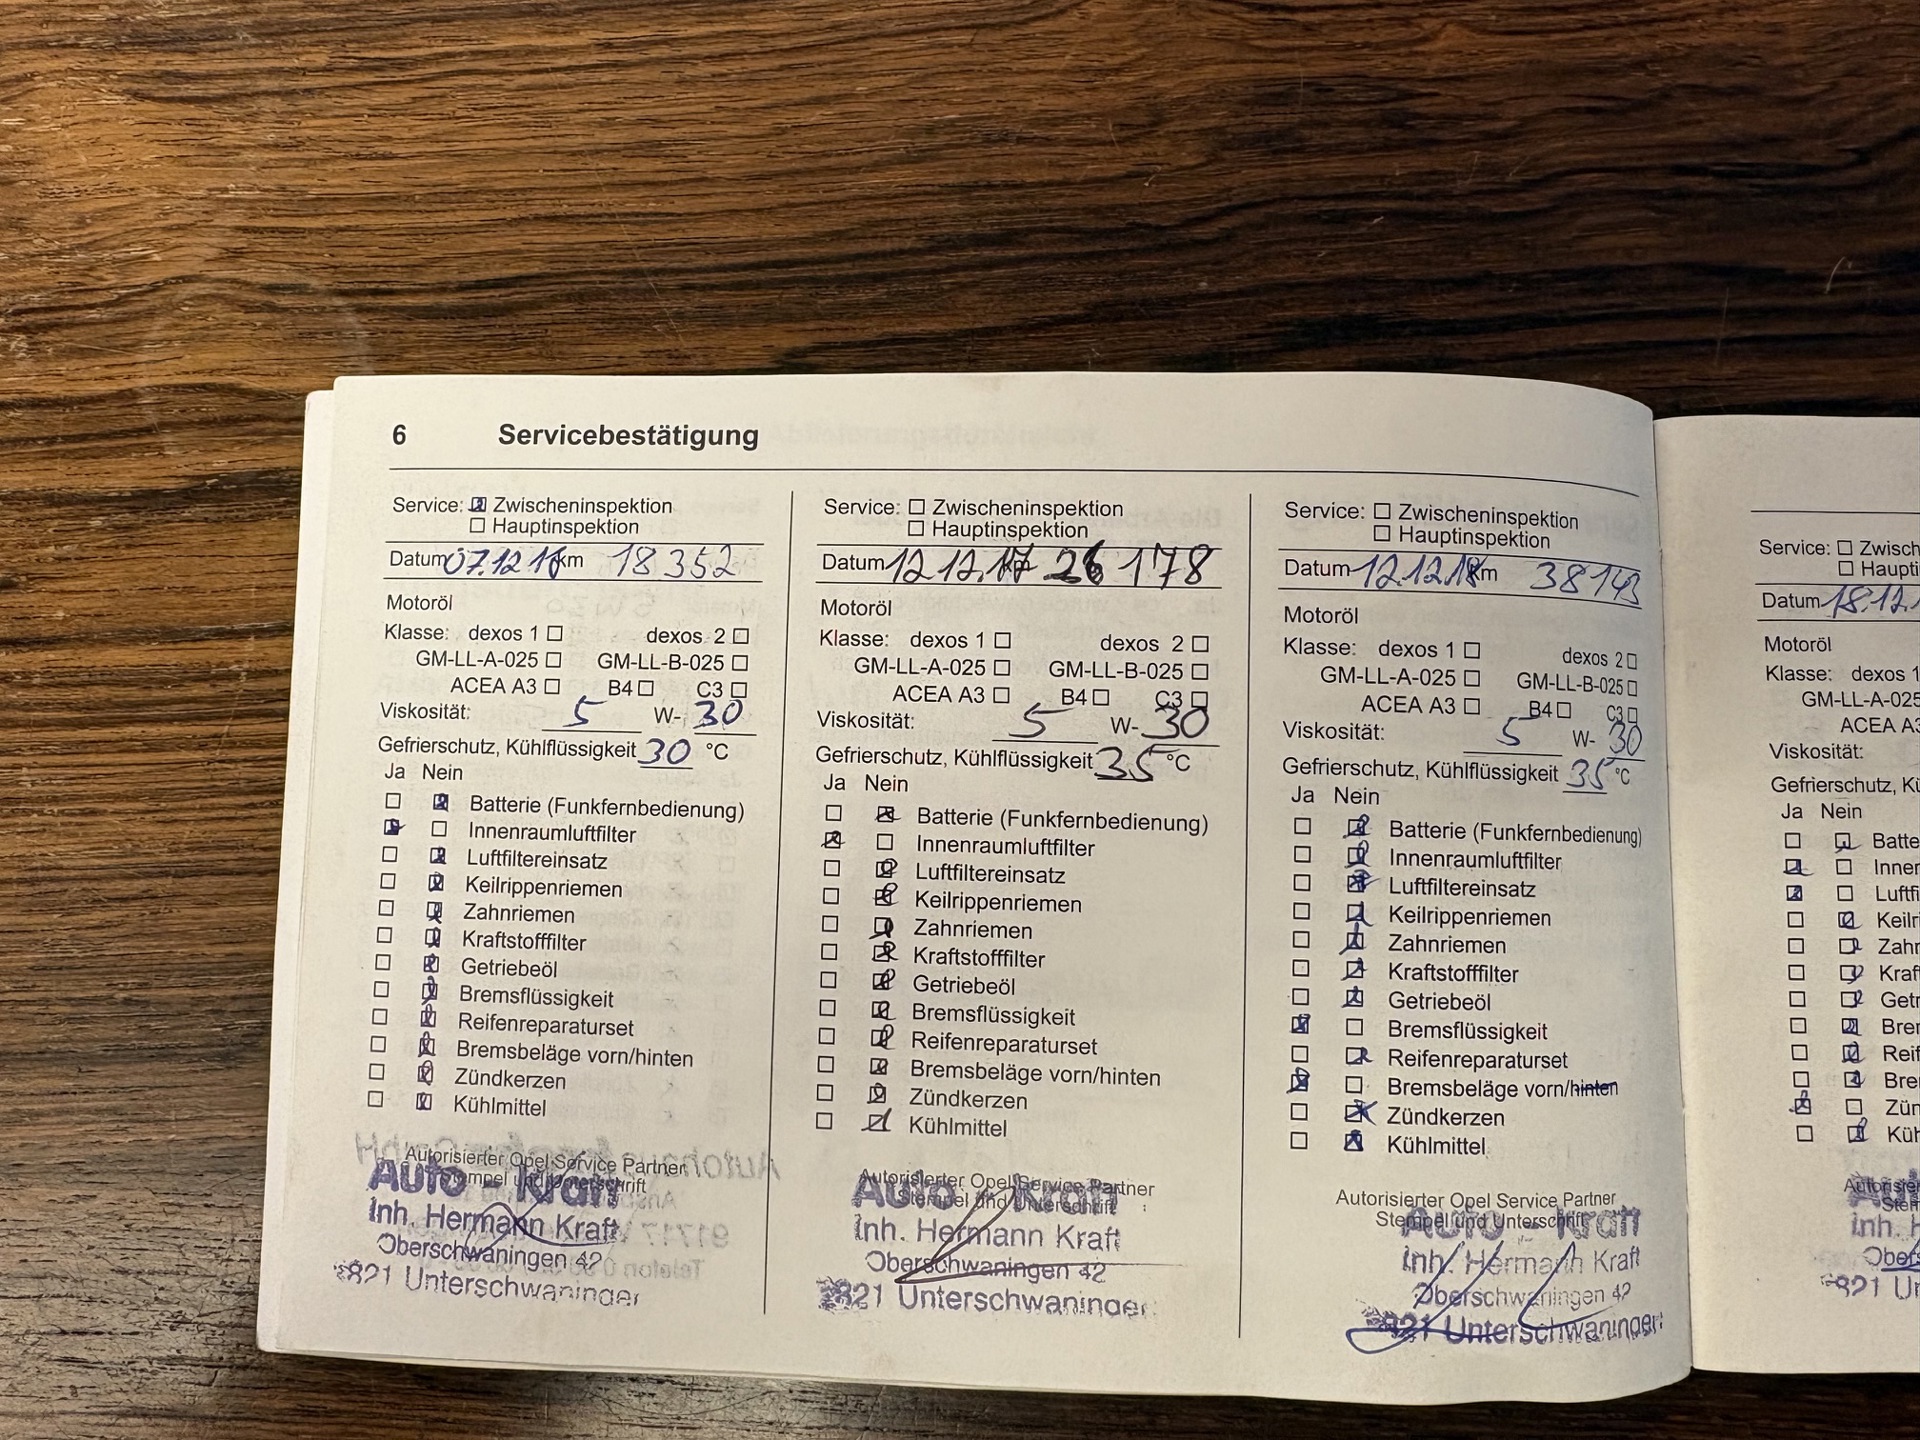 6 Servicebestätigung
Service: Zwischeninspektion
Hauptinspektion
Datum 07.12.16 km 18 352
Motoröl
Klasse: dexos 1 dexos 2
GM-LL-A-025 GM-LL-B-025
ACEA A3 B4 C3
Viskosität: 5 W- 30
Gefrierschutz, Kühlflüssigkeit 30 °C
Ja Nein
Batterie (Funkfernbedienung)
Innenraumluftfilter
Luftfiltereinsatz
Keilrippenriemen
Zahnriemen
Kraftstofffilter
Getriebeöl
Bremsflüssigkeit
Reifenreparaturset
Bremsbeläge vorn/hinten
Zündkerzen
Kühlmittel
Autorisierter Opel Service Partner
Stempel und Unterschrift
Auto - Kraft
Inh. Hermann Kraft
Oberschwaningen 42
821 Unterschwaningen
Service: Zwischeninspektion
Hauptinspektion
Datum 12.12.17 26 178
Motoröl
Klasse: dexos 1 dexos 2
GM-LL-A-025 GM-LL-B-025
ACEA A3 B4 C3
Viskosität: 5 W- 30
Gefrierschutz, Kühlflüssigkeit 35 °C
Ja Nein
Batterie (Funkfernbedienung)
Innenraumluftfilter
Luftfiltereinsatz
Keilrippenriemen
Zahnriemen
Kraftstofffilter
Getriebeöl
Bremsflüssigkeit
Reifenreparaturset
Bremsbeläge vorn/hinten
Zündkerzen
Kühlmittel
Autorisierter Opel Service Partner
Stempel und Unterschrift
Auto Kraft
Inh. Hermann Kraft
Oberschwaningen 42
821 Unterschwaningen
Service: Zwischeninspektion
Hauptinspektion
Datum 12.12.18 km 38143
Motoröl
Klasse: dexos 1 dexos 2
GM-LL-A-025 GM-LL-B-025
ACEA A3 B4 C3
Viskosität: 5 W- 30
Gefrierschutz, Kühlflüssigkeit 35 °C
Ja Nein
Batterie (Funkfernbedienung)
Innenraumluftfilter
Luftfiltereinsatz
Keilrippenriemen
Zahnriemen
Kraftstofffilter
Getriebeöl
Bremsflüssigkeit
Reifenreparaturset
Bremsbeläge vorn/hinten
Zündkerzen
Kühlmittel
Autorisierter Opel Service Partner
Stempel und Unterschrift
Auto - Kraft
Inh. Hermann Kraft
Oberschwaningen 42
821 Unterschwaningen
Service: Zwisch
Haupti
Datum 18.12.1
Motoröl
Klasse: dexos 1
GM-LL-A-025
ACEA A3
Viskosität:
Gefrierschutz, Kü
Ja Nein
Batte
Inner
Luftfi
Keilri
Zahn
Kraft
Getr
Bren
Reif
Bre
Zün
Küh
Autorisie
Stem
Inh. H
Obers
821 Un